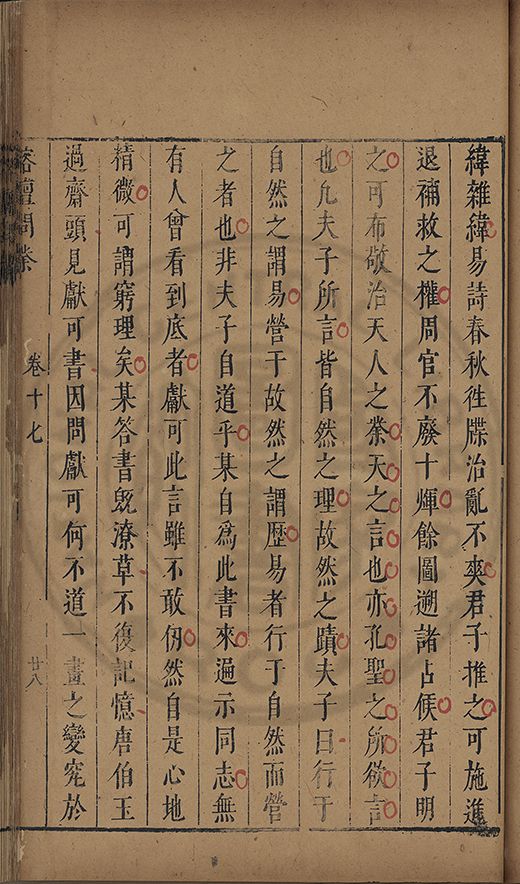 緯雜緯易詩春秋徃牒治亂不爽君子推之可施進
退補救之權周官不廢十煇餘圖遡諸占候君子明
之可布敬治天人之業天之言也亦孔聖之所欲言
也凡夫子所言皆自然之理故然之蹟夫子曰行于
自然之謂易營于故然之謂歷易者行于自然而營
之者也非夫子自道乎某自爲此書來遍示同志無
有人曾看到底者獻可此言雖不敢仞然自是心地
精微可謂窮理矣某答書旣潦草不復記憶唐伯玉
過齋頭見獻可書因問獻可何不道一畫之變究於
榕壇問業
卷十七
廿八